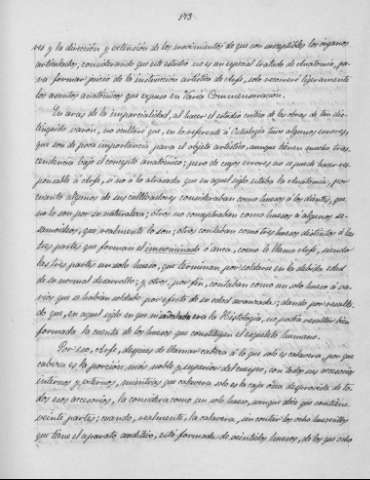 143.
y la direccion y extension de los movimientos de que son susceptibles los órganos
articulados, considerando que este estudio no es un especial tratado de Anatomía, pa-
ra formar juicio de la instruccion artística de Arfe, solo recorreré ligeramente
los asuntos anatómicos que expuso en Varia Conmensuracion.
En aras de la imparcialidad, al hacer el estudio crítico de las obras de tan dis-
tinguido varon, no ocultaré que, en lo referente á Osteología tuvo algunos errores,
que son de poca importancia para el objeto artístico, aunque tienen mucha tras-
cendencia bajo el concepto anatómico; pero de cuyos errores no se puede hacer res-
ponsable á Arfe, si no á lo atrasada que en aquel siglo estaba la Anatomía; por
cuanto algunos de sus cultivadores consideraban como huesos á los dientes, que
no lo son por su naturaleza; otros no conceptuaban como huesos á algunos se-
samoideos, que realmente lo son; otros contaban como tres huesos distintos á las
tres partes que forman el innominado ó anca, como la llama Arfe, siendo
las tres partes un solo hueso, que terminan por soldarse en la debida edad
de su normal desarrollo; y otros, por fin, contaban como un solo hueso á va-
rios que se habían soldado por efecto de su edad avanzada; dando por resulta-
do que, en aquel siglo en que era la Histología, no podía resultar bien
formada la cuenta de los huesos que constituyen el esqueleto humano.
Por eso, Arfe, despues de llamar cabeza á lo que solo es calavera, por que
cabeza es la porcion, mas noble y superior del cuerpo, con todos sus accesorios
internos y externos, mientras que calavera solo es la caja ósea desprovista de to-
dos esos accesorios, la considera como un solo hueso, aunque dice que contiene
veinte partes; cuando, realmente, la calavera, sin contar los ocho huesecillos
que tiene el aparato auditivo, está formada de veintidos huesos, de los que ocho